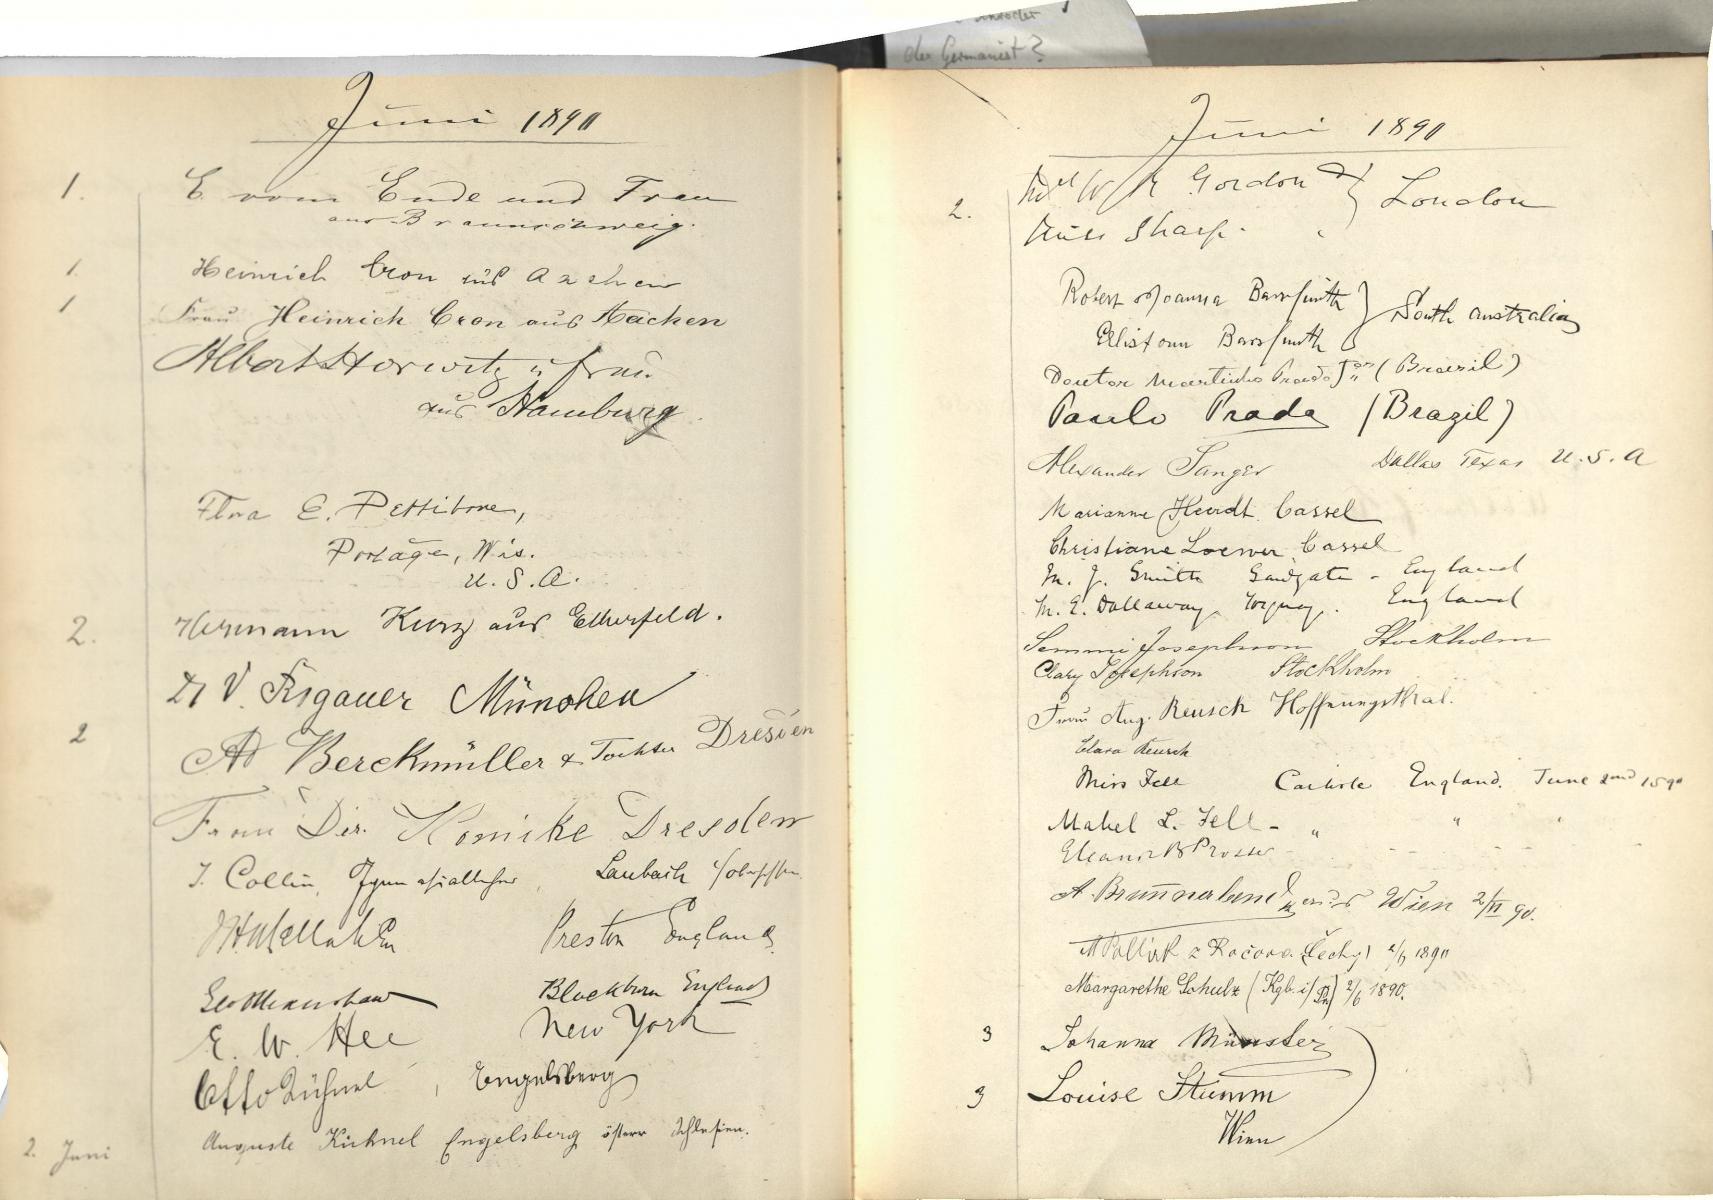 der Germanist?
Juni 1890
1. E vom Ende und Frau
aus Braunschweig.
1. Heinrich Cron aus Aachen
1 Frau Heinrich Cron aus Aachen
Albert Horwitz u Frau
aus Hamburg
Flora E. Pettibone,
Portage, Wis.
U. S. A.
2. Hermann Kurz aus Elberfeld.
Dr V. Rigauer München
2 Ad Berckmüller & Tochter Dresden
Frau Dir. Konicke Dresden
J. Collin, Laubach
Preston England
Blackburn England
E. W. Hee New York
Otto Kühnel, Engelsberg
2. Juni Auguste Kühnel Engelsberg österr Schlesien.
Juni 1890
Gordon London
2. Miss Sharp.
Robert Joanna Barr Smith South Australia
Barr Smith
Doutor Martinho Prado Jor (Brazil)
Paulo Prado (Brazil)
Alexander Sanger Dallas Texas U. S. A
Marianne Cassel
Christiane Loewer Cassel
M. J. Smith Sandgate - England
M. E. Dallaway England
Semmi Josephson Stockholm
Clary Josephson Stockholm
Frau Aug. Reusch Hoffnungsthal.
Clara Reusch
Miss Fell Carlisle England. June 2nd 1890
Mabel L. Fell - " " "
Eleanor B Prosser
aus Wien 2/VI 90.
Pollak z Čechy 2/6 1890
Margarethe Schulz (Kgb. i/Pr) 2/6 1890.
3 Johanna Münster
3 Louise Stumm
Wien